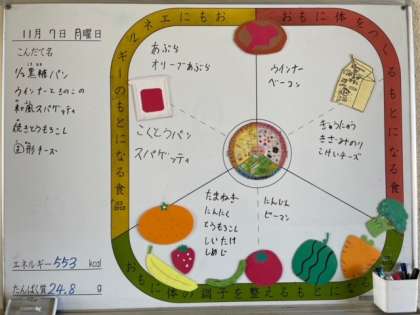 11月7日月曜日
こんだて名
1/2黒糖パン
ウインナーときのこの
和風スパゲッティ
焼きとうもろこし
固形チーズ
エネルギー553 kcal
たんぱく質24.8 g
エネルギーのもとになる食
おもに体をつくるもとになる食
おもに体の調子を整えるもとになる食
あぶら
オリーブあぶら
ウインナー
ベーコン
こくとうパン
スパゲッティ
ぎゅうにゅう
きざみのり
こけいチーズ
たまねぎ
にんにく
とうもろこし
しいたけ
しめじ
にんじん
ピーマン